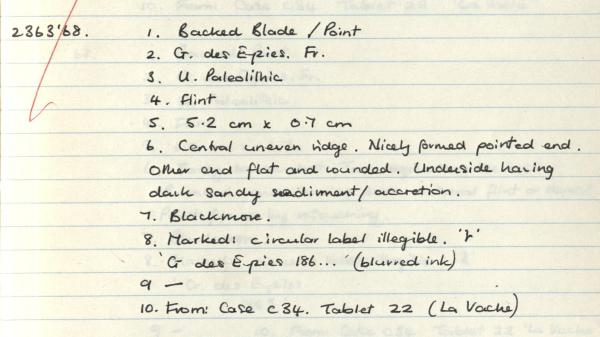 2363'68. 1. Backed Blade / Point
2. G. des Epies. Fr.
3. U. Paleolithic
4. Flint
5. 5.2 cm x 0.7 cm
6. Central uneven ridge. Nicely formed pointed end.
Other end flat and rounded. Underside having
dark sandy sediment/accretion.
7. Blackmore.
8. Marked: circular label illegible.
'G des Epies 186...' (blurred ink)
9 —
10. From: Case C34. Tablet 22 (La Vache)